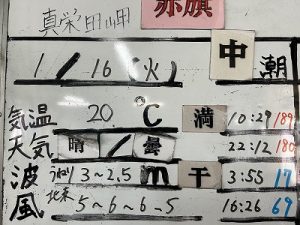 真栄田岬 赤旗
1/16(火) 中潮
気温 20℃ 満 10:29 189
天気 晴/曇 22:12 180
波 うねり 3~2.5m 干 3:55 17
風 北東 5-6-6-5 16:26 69